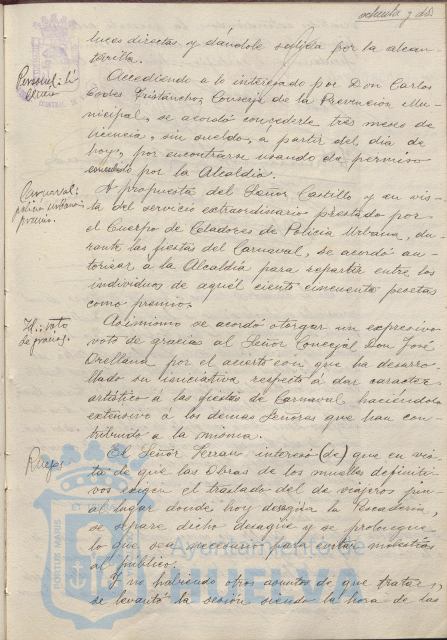 ochenta y dos
luces directas y dándole salida por la alcan-
tarilla.
Personal: li-
cencia
Accediendo a lo interesado por Don Carlos
Conserje de la Prevención Mu-
nicipal, se acordó concederle tres meses de
licencia, sin sueldo, a partir del día de
hoy, por encontrarse usando de permiso
por la Alcaldía.
Carnaval:
policía urbana
premio.
A propuesta del Señor Castillo y en vis-
ta del servicio extraordinario prestado por
el Cuerpo de Celadores de Policía Urbana, du-
rante las fiestas del Carnaval, se acordó au-
torizar a la Alcaldía para repartir entre los
individuos de aquél ciento cincuenta pesetas
como premio.
Id.: voto
de gracias.
Asimismo se acordó otorgar un expresivo
voto de gracias al Señor Concejal Don José
Orellana por el acierto con que ha desarro-
llado su iniciativa respecto a dar caracter
artístico a las fiestas de Carnaval haciéndolo
extensivo á los demas Señores que han con-
tribuido a la misma.
Ruegos
El Señor Terran interesó (de) que en vis-
ta de que las Obras de los muelles definiti-
vos exigen el traslado del de viajeros jun-
al lugar donde hoy desagua la Pescadería,
se repare dicho desagüe y se prolongue
lo que sea necesario para evitar molestias
al público.
Y no habiendo otros asuntos de que tratar,
se levantó la sesión siendo la hora de las
Ayuntamiento de
HUELVA
PORTUS MARIS